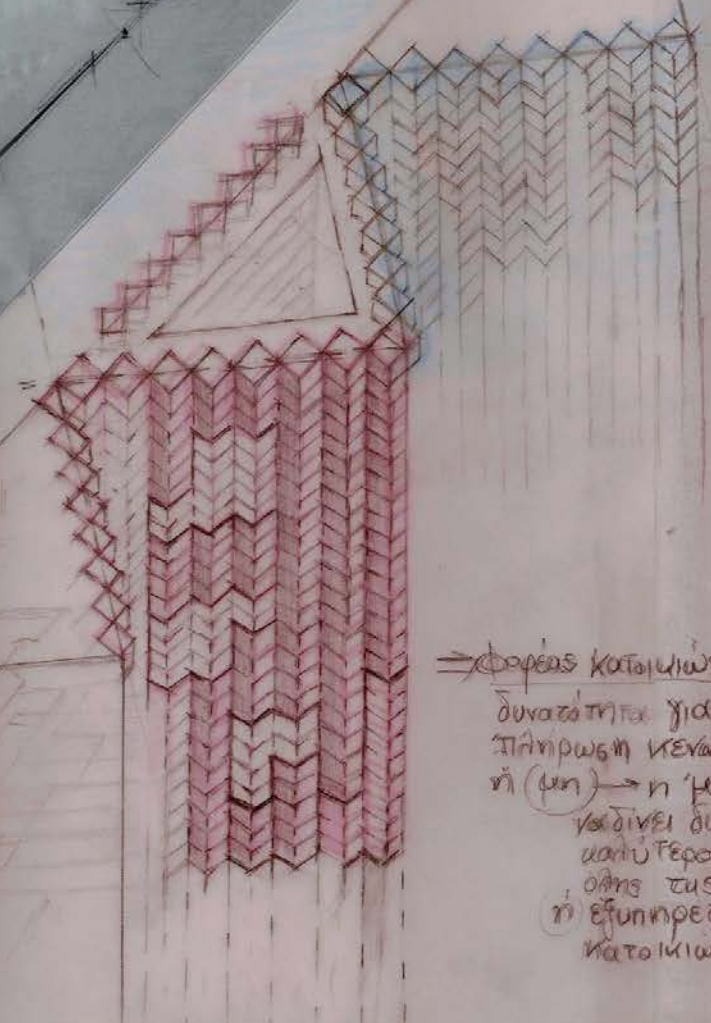 ⇒ φορέας κατοικιών
δυνατότητα για
πλήρωση κενώ
ή (μη) → η 'μ
να δίνει δυ
καλύτερο
όλης της
ή εξυπηρε
κατοικιώ